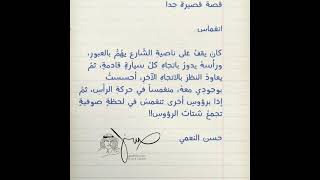 قصة قصيرة جدا
انغماس
كان يقفُ على ناصية الشارعِ يهُمُّ بالعبورِ،
ورأسهُ يدورُ باتجاهِ كلّ سيارةٍ قادمةٍ، ثمّ
يعاودُ النظرَ بالاتجاهِ الآخرِ، أحسستُ
بوجودي معهُ، منغمساً في حركةِ الرأسِ، ثمّ
إذا برؤوسٍ أخرى تنغمسُ في لحظةٍ صوفيةٍ
تجمعُ شتاتَ الرؤوسِ!!
حسن النعمي